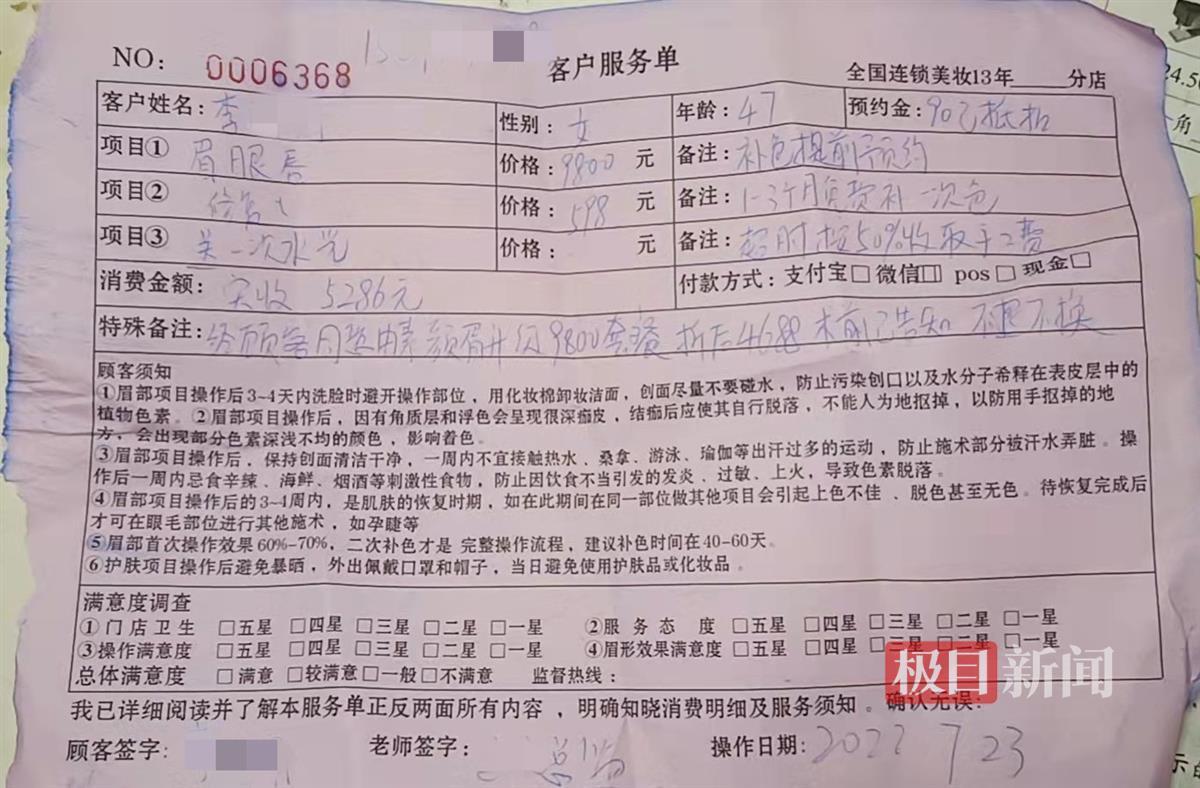 NO: 0006368 客户服务单 全国连锁美妆13年 分店
客户姓名: 李 性别: 女 年龄: 47 预约金: 90已抵扣
项目① 眉眼唇 价格: 9800 元 备注: 补色提前预约
项目② 价格: 598 元 备注: 1-3个月免费补一次色
项目③ 关一次水光 价格: 元 备注: 超时按50%收取手工费
消费金额: 实收 5286元 付款方式: 支付宝□ 微信□ pos□ 现金□
特殊备注: 经顾客同意 眉升级9800套餐 折后4688 术前已告知 不退不换
顾客须知
①眉部项目操作后3~4天内洗脸时避开操作部位，用化妆棉卸妆洁面，创面尽量不要碰水，防止污染创口以及水分子希释在表皮层中的
植物色素。②眉部项目操作后，因有角质层和浮色会呈现很深痂皮，结痂后应使其自行脱落，不能人为地抠掉，以防用手抠掉的地
方，会出现部分色素深浅不均的颜色，影响着色。
③眉部项目操作后，保持创面清洁干净，一周内不宜接触热水、桑拿、游泳、瑜伽等出汗过多的运动，防止施术部分被汗水弄脏。操
作后一周内忌食辛辣、海鲜、烟酒等刺激性食物，防止因饮食不当引发的发炎、过敏、上火，导致色素脱落。
④眉部项目操作后的3~4周内，是肌肤的恢复时期，如在此期间在同一部位做其他项目会引起上色不佳、脱色甚至无色。待恢复完成后
才可在眼毛部位进行其他施术，如孕睫等
⑤眉部首次操作效果60%-70%，二次补色才是 完整操作流程，建议补色时间在40-60天。
⑥护肤项目操作后避免暴晒，外出佩戴口罩和帽子，当日避免使用护肤品或化妆品。
满意度调查
①门店卫生 □五星 □四星 □三星 □二星 □一星 ②服务态度 □五星 □四星 □三星 □二星 □一星
③操作满意度 □五星 □四星 □三星 □二星 □一星 ④眉形效果满意度 □五星 □四星 □三星 □二星 □一星
总体满意度 □满意 □较满意 □一般 □不满意 监督热线：
极目新闻
我已详细阅读并了解本服务单正反两面所有内容，明确知晓消费明细及服务须知。确认无误:
顾客签字: 老师签字: 总监 操作日期: 2022 7 23